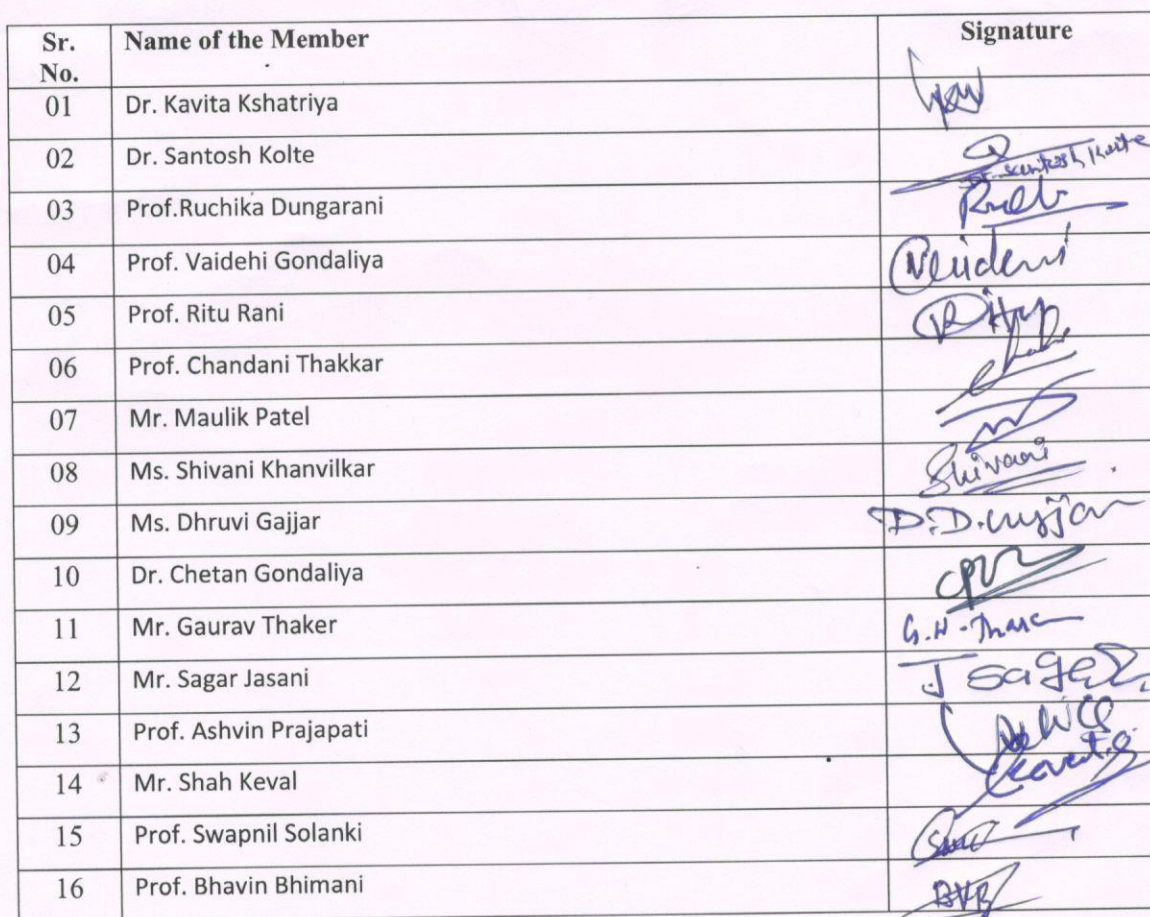 Sr. No. Name of the Member Signature
01 Dr. Kavita Kshatriya
02 Dr. Santosh Kolte Dr. Santosh Kolte
03 Prof.Ruchika Dungarani
04 Prof. Vaidehi Gondaliya
05 Prof. Ritu Rani
06 Prof. Chandani Thakkar
07 Mr. Maulik Patel
08 Ms. Shivani Khanvilkar Shivani
09 Ms. Dhruvi Gajjar
10 Dr. Chetan Gondaliya
11 Mr. Gaurav Thaker
12 Mr. Sagar Jasani J Sagar
13 Prof. Ashvin Prajapati
14 Mr. Shah Keval
15 Prof. Swapnil Solanki
16 Prof. Bhavin Bhimani BVB